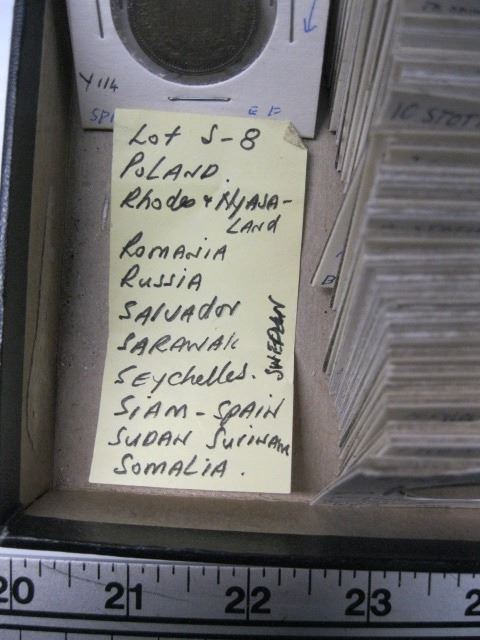 Y114
Lot S-8
POLAND.
Rhodes + NYASA-
LAND
ROMANIA
RUSSIA
SALVADOR
SARAWAK
SEychelles.
SWEDAN
SIAM - SPAIN
SUDAN SuriNAM
SOMALIA.
10 STOT
20 21 22 23 24